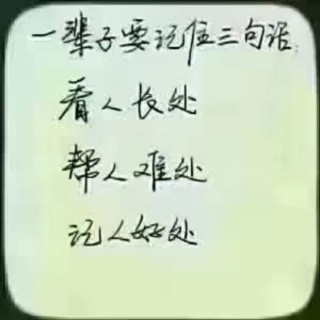 一辈子要记住三句话:
看人长处
帮人难处
记人好处